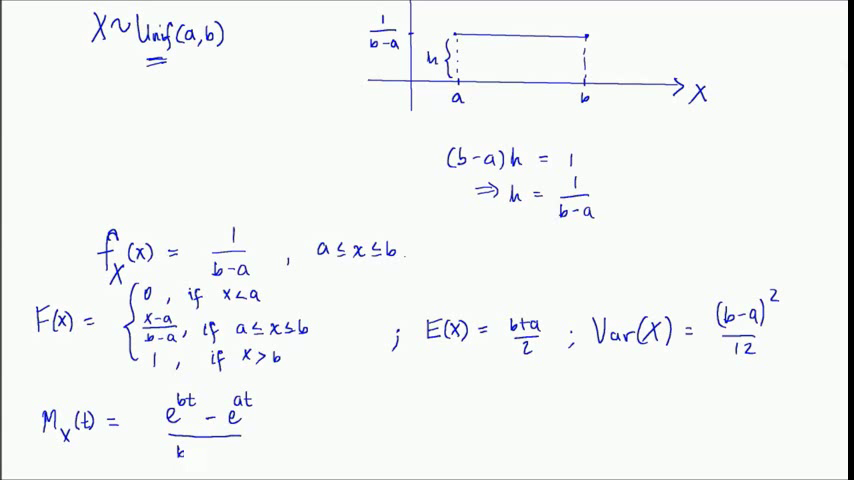 X ~ Unif(a,b)
1/(b-a)
h
a b X
(b-a)h = 1
⇒ h = 1/(b-a)
f_X(x) = 1/(b-a) , a ≤ x ≤ b.
F(x) = { 0 , if x < a
(x-a)/(b-a) , if a ≤ x ≤ b ; E(X) = (b+a)/2 ; Var(X) = (b-a)^2/12
1 , if x > b
M_X(t) = (e^{bt} - e^{at})/